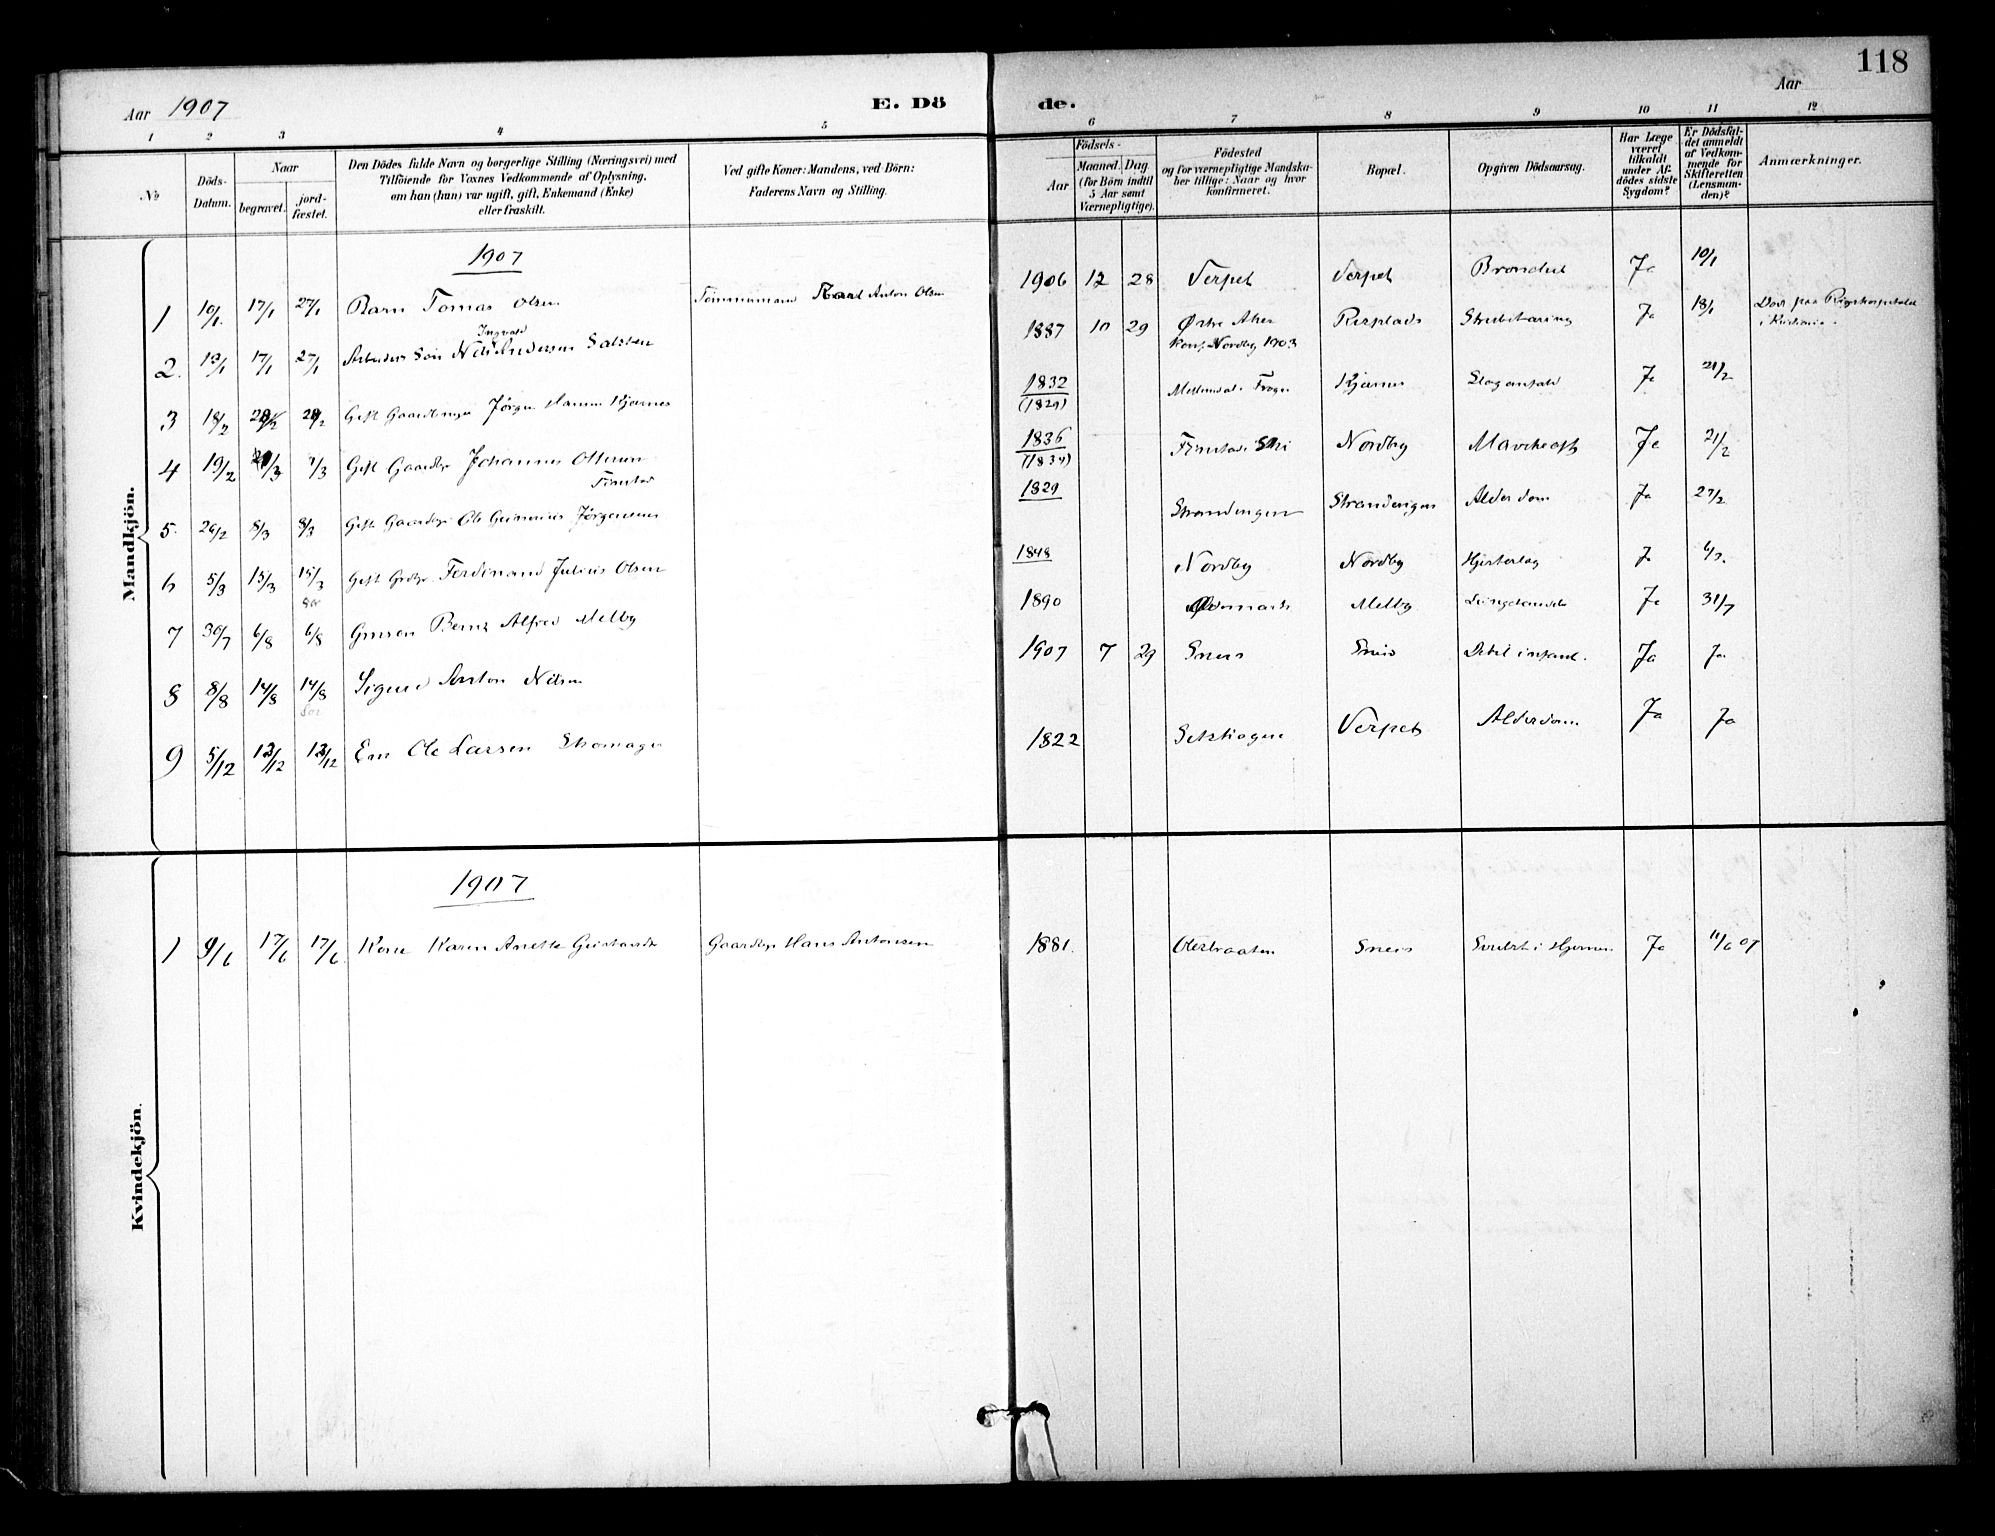 118
Aar 1907
E. Dö
de.
Aar
1 2 3 4 5 6 7 8 9 10 11 12
No
Döds-
Datum.
Naar
begravet.
jord-
fæstet.
Den Dödes fulde Navn og borgerlige Stilling (Næringsvei) med
Tilföiende for Voxnes Vedkommende af Oplysning,
om han (hun) var ugift, gift, Enkemand (Enke)
eller fraskilt.
Ved gifte Koner: Mandens, ved Börn:
Faderens Navn og Stilling.
Födsels-
Aar
Maaned. Dag
(for Börn indtil
5 Aar samt
Værnepligtige).
Födested
og for værnepligtige Mandska-
ber tillige: Naar og hvor
konfirmeret.
Bopæl.
Opgiven Dödsaarsag.
Har Læge
været
tilkaldt
under Af-
dödes sidste
Sygdom?
Er Dödsfal-
det anmeldt
af Vedkom-
mende for
Skifteretten
(Lensman-
den)?
Anmærkninger.
Mandkjön.
1907
1 10/1 17/1 27/1 Barn Tomas Olsen Tømmermand Karl Anton Olsen 1906 12 28 Verpet Verpet Bronchit Ja 10/1
2. 17/1 27/1 Arbeider Søn Nils Andersen 1887 10 29 Østre Aker Ja 18/1
Ingvald
Konf. Nordby 1903
3 18/2 Gift Gaardbruger Jörgen Hansen Kjærnes 1832 Frogn Kjærnes Slaganfald Ja 21/2
(1829)
4 19/2 1/3 Gift Gaardbr Johannes 1836 Finstad i Ski Nordby Marvkræft Ja 21/2
Finstad
(1834)
5. 26/2 8/3 8/3 Gift Gaardbr Ole Jörgensen 1829 Strandengen Strandengen Alderdom Ja 27/2
6 5/3 15/3 15/3 Gift Grdbr Ferdinand Julius Olsen 1848 Nordby Nordby Hjerteslag Ja
7 30/7 6/8 6/8 Bernt Alfred Melby 1890 Melby Ja 31/7
8 8/8 14/8 14/8 Sigurd Anton Nilsen 1907 7 29 Sneis Sneis Debil. infant. Ja Ja
9 5/12 13/12 13/12 Em Ole Larsen Skomager 1822 Verpet Alderdom Ja Ja
Kvindekjön.
1907
1 9/6 17/6 17/6 Kone Karen Anette Gaardbr Hans Antonsen 1881. Oksbraaten Sneis Svulst i Hjernen Ja 11/6 07